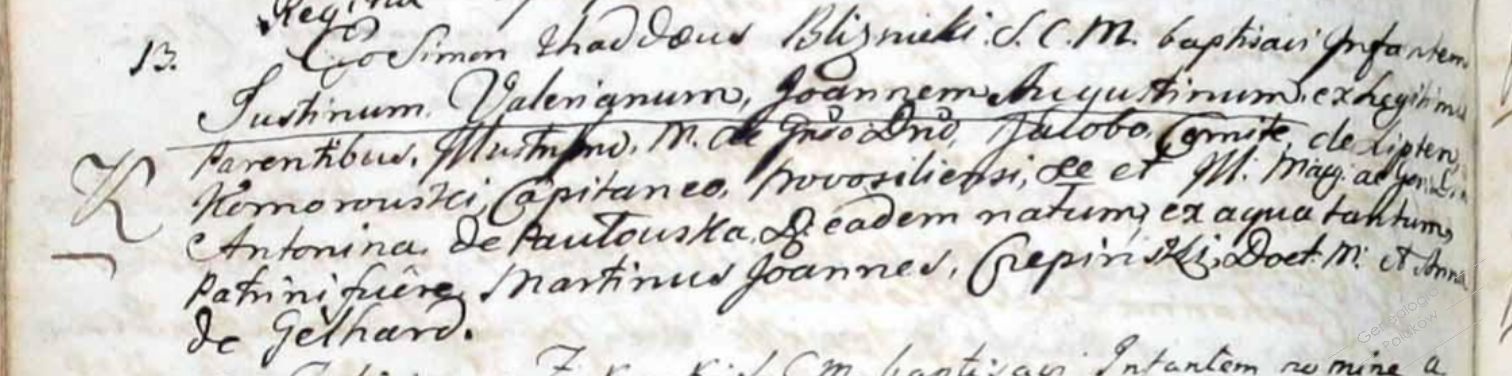 Regina
13. Ego Simon Thaddæus Blizniski S. C. M. baptisavi Infantem
Justinum Valerianum, Joannem Augustinum, ex Legitimis
Parentibus, M. de Jacobo Comite de Lipten
Komorowski, Capitaneo Novosiliensi, et M. Magg. ac
K
Antonina de Pawłowska eadem natum, ex aqua tantum,
Patrini fuêre Martinus Joannes, Czepinski, Doct. M. et Anna
de Gelhard.
S. C. M. baptisavi Infantem nomine
Genealogia
Potuków